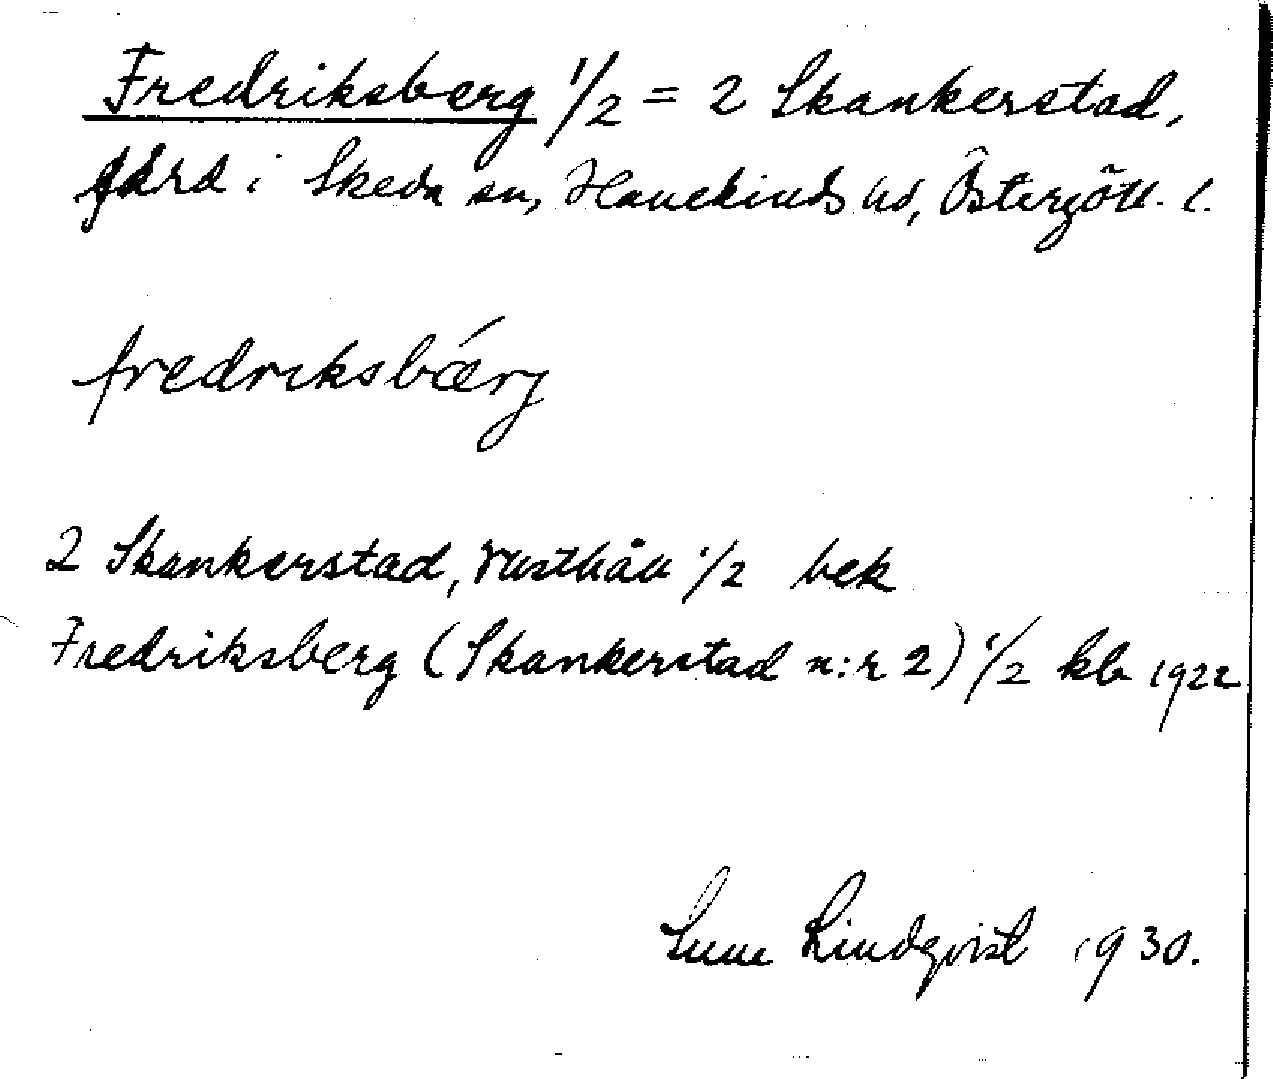 Fredriksberg 1/2 = 2 Skankerstad,
gård i Skeda sn, Hanekinds hd, Östergötl. l.
fredriksbærj
2 Skankerstad, rusthåll 1/2 bek
Fredriksberg (Skankerstad n:r 2) 1/2 kb 1922
Sune Lindqvist 1930.